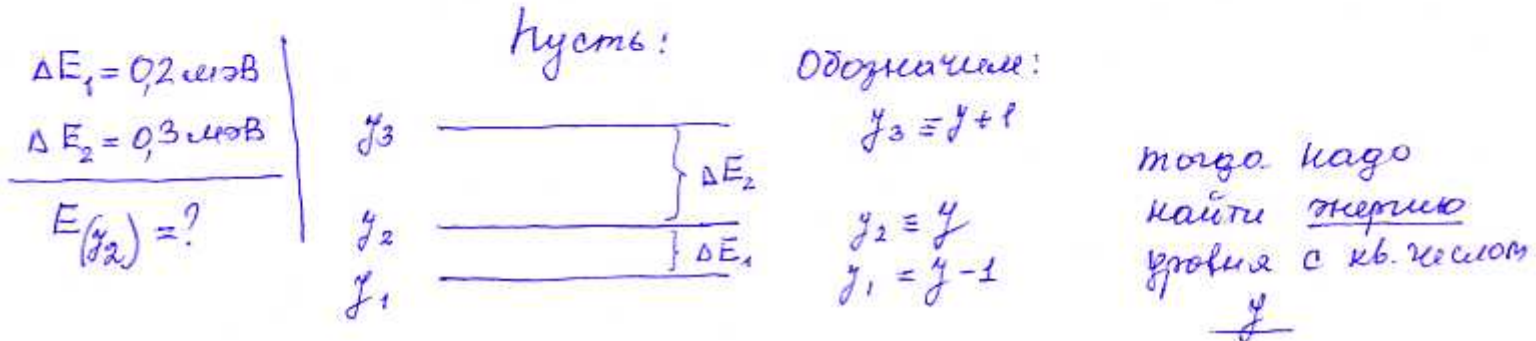 ΔE₁ = 0,2 мэВ
ΔE₂ = 0,3 мэВ
E(y₂) = ?
Пусть:
y₃
ΔE₂
y₂
ΔE₁
y₁
Обозначим:
y₃ ≡ y + 1
y₂ ≡ y
y₁ = y - 1
тогда надо
найти энергию
уровня с кв. числом
y